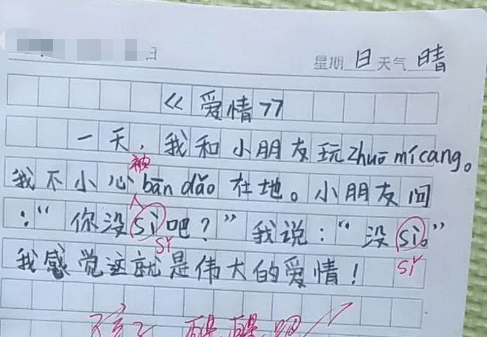 日
星期 日 天气 晴
《爱情》
一天，我和小朋友玩zhuō mícang。
被
我不小心bān dǎo在地。小朋友问
：“你没sì吧？”我说：“没sì。”
sǐ sǐ
我感觉这就是伟大的爱情！
孩子 醒醒吧！